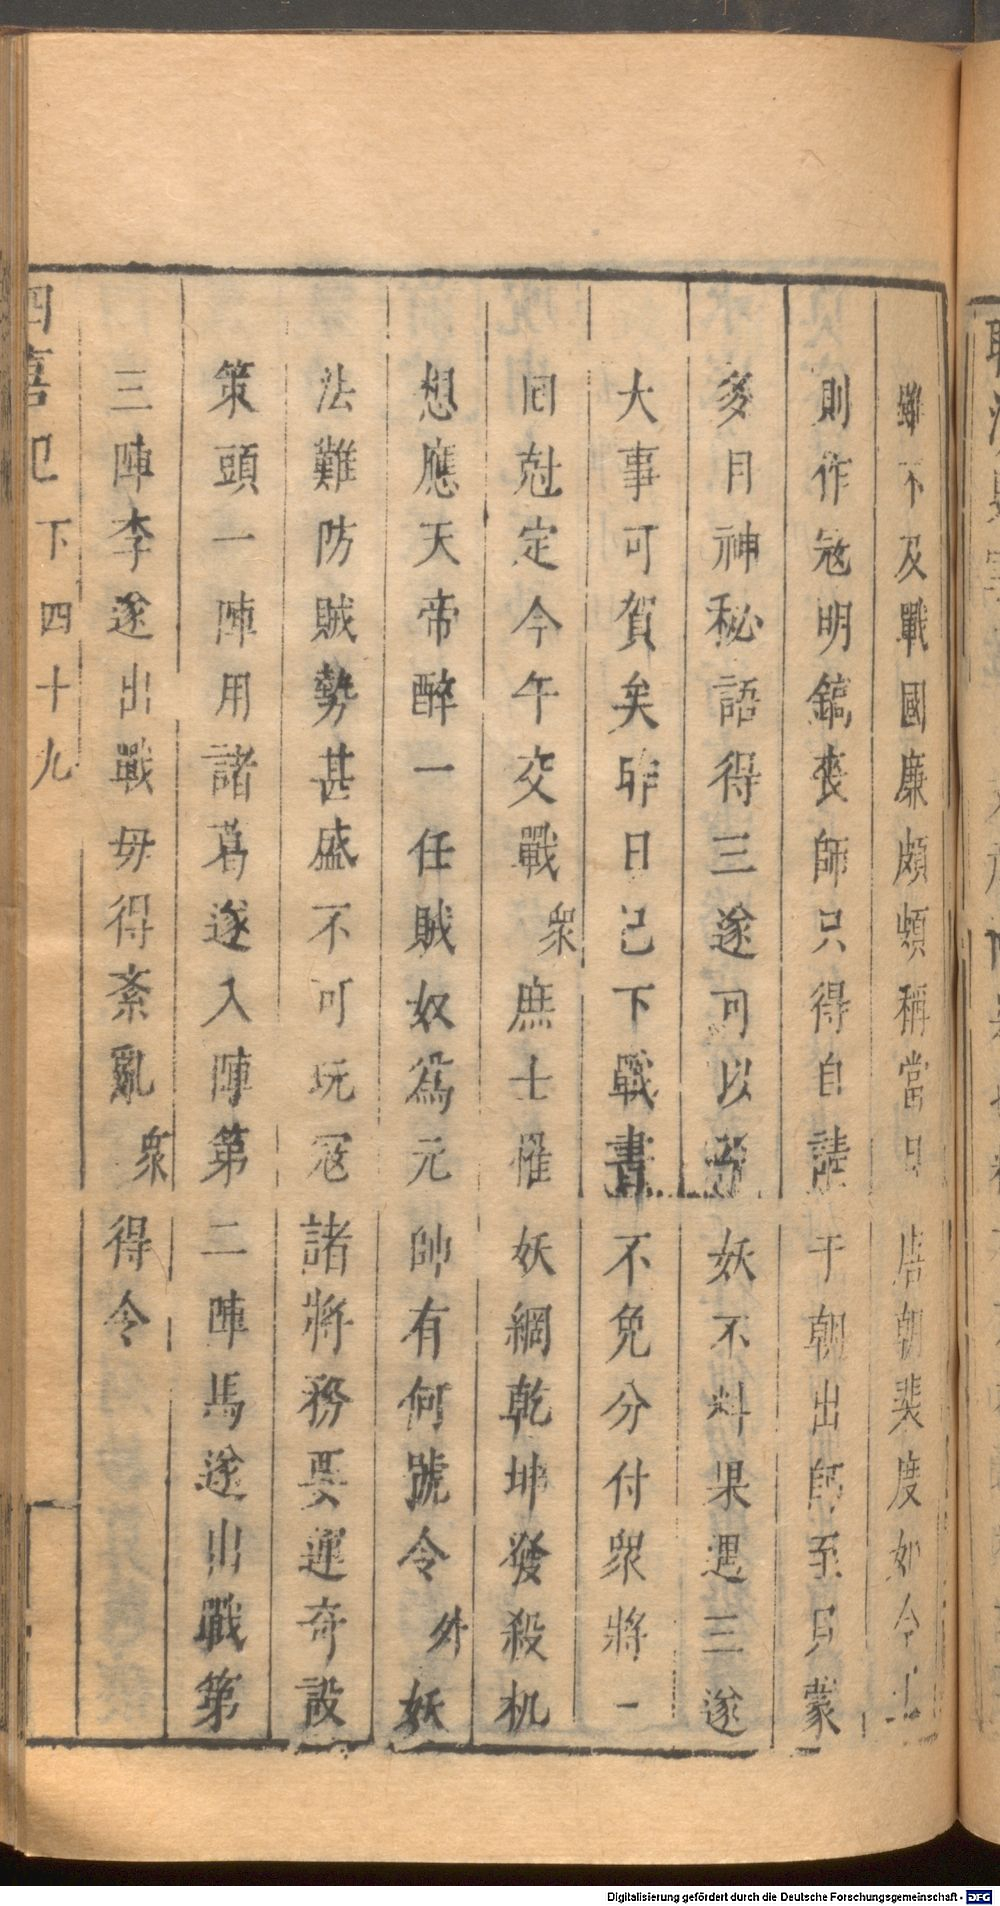 雖不及戰國廉頗頗稱當日唐朝裴度如今
則作冦明鎬喪師只得自請于朝出師至貝蒙
多目神秘語得三遂可以妖不料果遇三遂
大事可賀矣昨日已下戰書不免分付衆將一
同尅定今午交戰衆庶士催妖網乾坤發殺机
想應天帝醉一任賊奴爲元帥有何號令外妖
法難防賊勢甚盛不可玩冦諸將務要運奇設
策頭一陣用諸葛遂入陣第二陣馬遂出戰第
三陣李遂出戰毋得紊亂衆得令
四喜巴下四十九
Digitalisierung gefördert durch die Deutsche Forschungsgemeinschaft - DFG